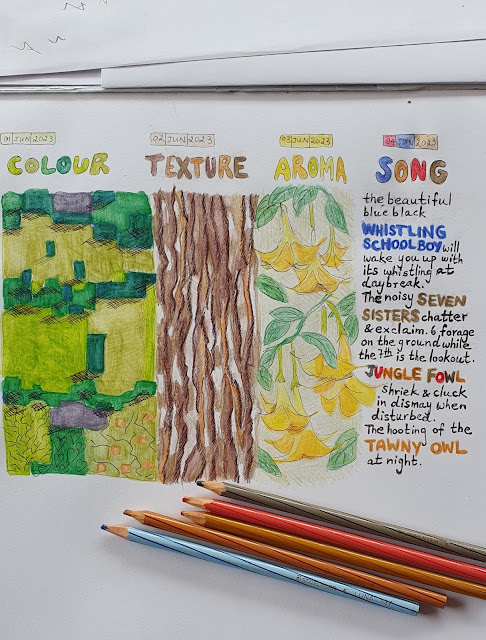 01 JUN 2023
COLOUR
02 JUN 2023
TEXTURE
03 JUN 2023
AROMA
04 JUN 2023
SONG
the beautiful
blue black
WHISTLING
SCHOOLBOY will
wake you up with
its whistling at
daybreak.
The noisy SEVEN
SISTERS chatter
& exclaim. 6 forage
on the ground while
the 7th is the lookout.
JUNGLE FOWL
shriek & cluck
in dismay when
disturbed.
The hooting of the
TAWNY OWL
at night.